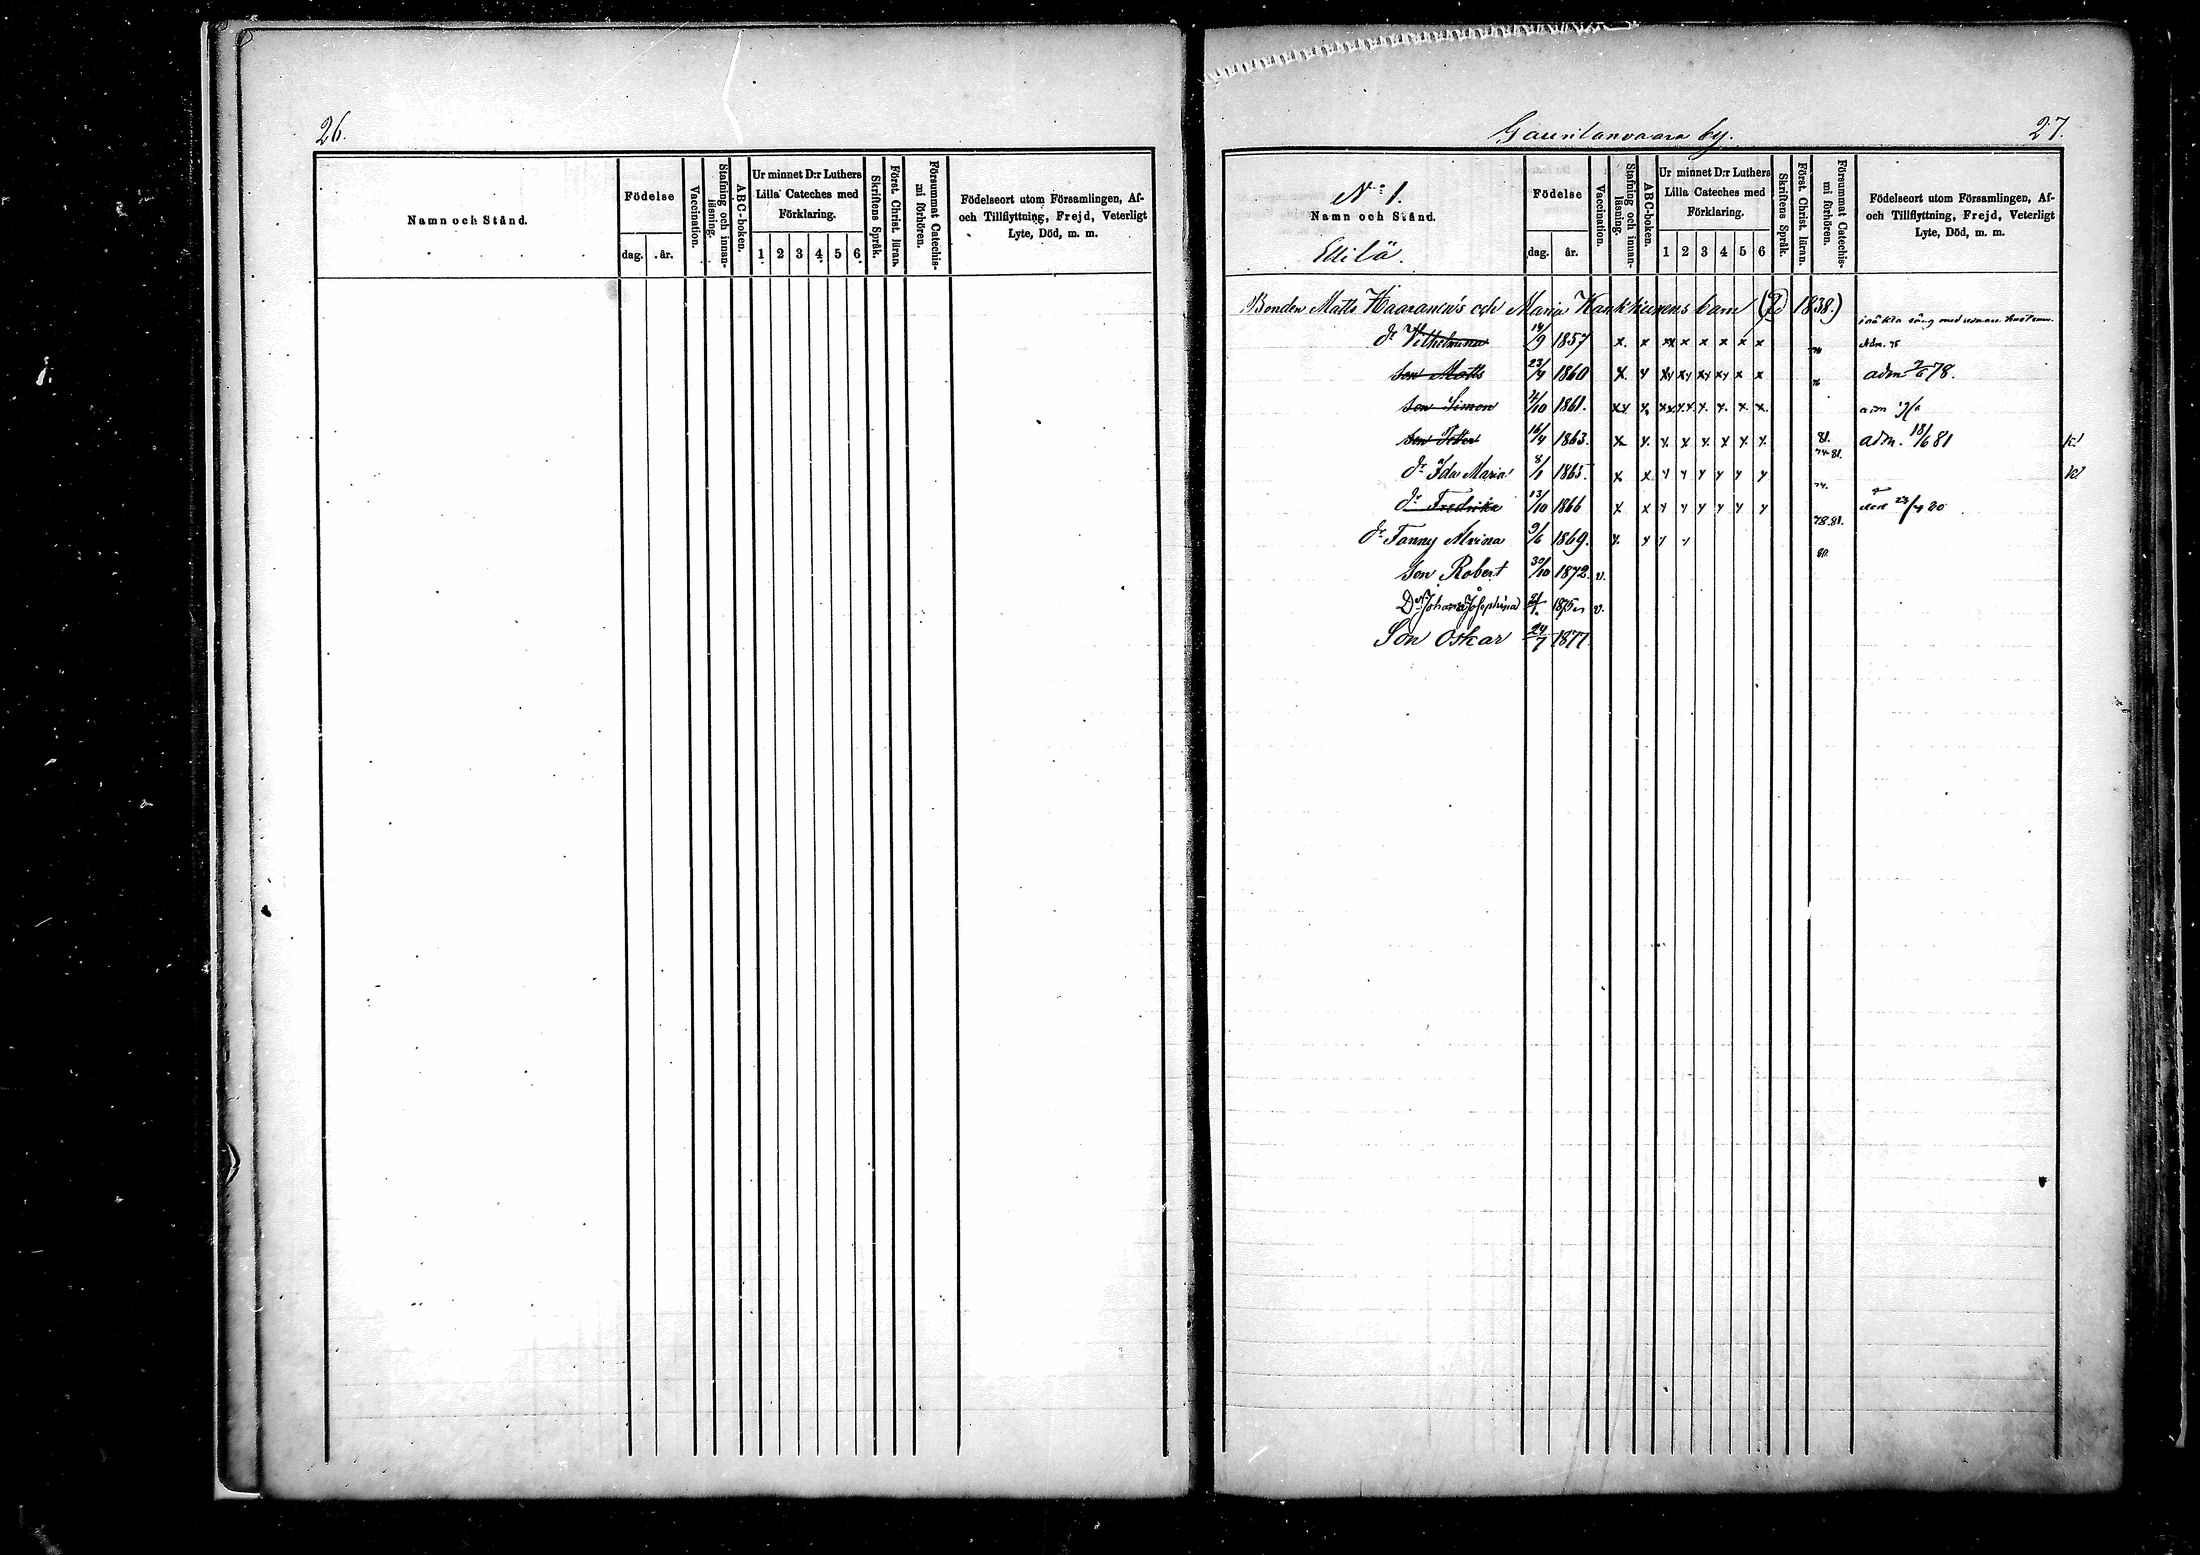 26.
Namn och Stånd.
Födelse
dag.
år.
Vaccination.
Stafning och innan-
läsning.
ABC-boken.
Ur minnet D:r Luthers
Lilla Cateches med
Förklaring.
1 2 3 4 5 6
Skriftens Språk.
Först. Christ. läran.
Försummat Catechis-
mi förhören.
Födelseort utom Församlingen, Af-
och Tillflyttning, Frejd, Veterligt
Lyte, Död, m. m.
by.
27.
N:o 1.
Namn och Stånd.
Edilä.
Födelse
dag.
år.
Vaccination.
Stafning och innan-
läsning.
ABC-boken.
Ur minnet D:r Luthers
Lilla Cateches med
Förklaring.
1 2 3 4 5 6
Skriftens Språk.
Först. Christ. läran.
Försummat Catechis-
mi förhören.
Födelseort utom Församlingen, Af-
och Tillflyttning, Frejd, Veterligt
Lyte, Död, m. m.
Bonden Matts Haaranen's och Maria barn 1838.)
dr Vilhelmina 14/9 1857 x. x xx x x x x x Adm. 75
son Matts 23/4 1860 x. x xx xx xx xx x x 76 adm 78.
son Simon /10 1861. xx x. xx xx x. x. x. x.
son Petter 16/4 1863. x x. x. x x x x x. 81. adm. 18/6 81 k!
74-81.
dr Ida Maria 8/1 1865 x x. x x x x x x k!
74.
dr Fredrika 13/10 1866 x x x x x x x x död 23/ 80
78.81.
dr Fanny Alvina 9/6 1869. x. x x x
80.
Son Robert 30/10 1872. v.
Dr Johana Josephina 1875 v.
Son Oskar 24/7 1877